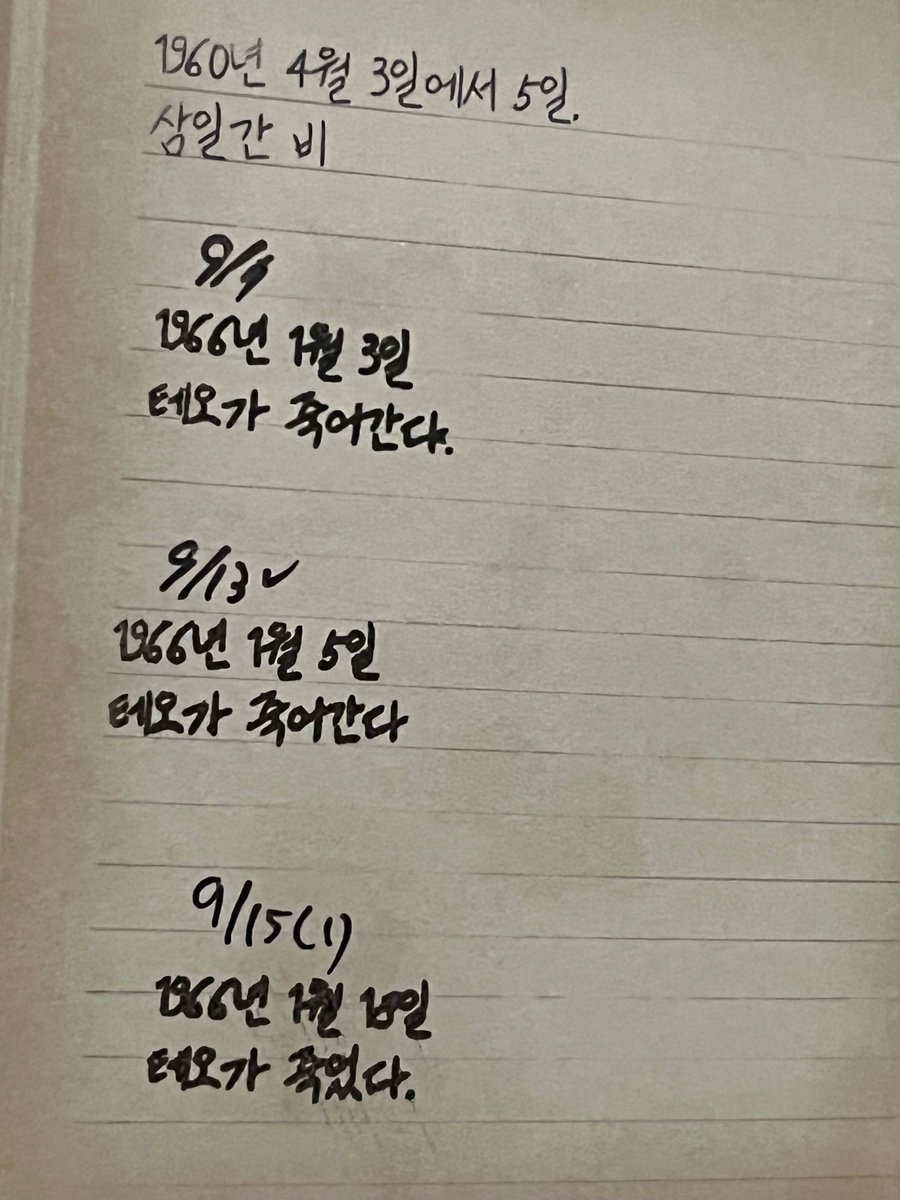 1960년 4월 3일에서 5일.
삼일간 비
1966년 1월 3일
테오가 죽어간다.
9/13✓
1966년 1월 5일
테오가 죽어간다
9/15(1)
1966년 1월
테오가 죽었다.